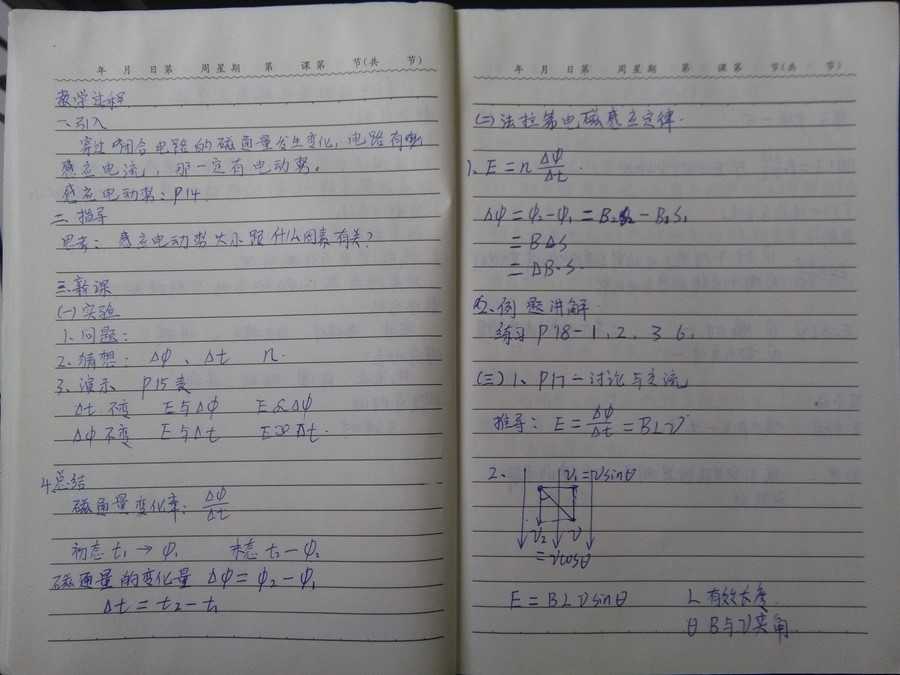 年 月 日第 周星期 第 课第 节(共 节)
教学过程
一、引入
穿过闭合电路的磁通量发生变化，电路有
感应电流，那一定有电动势。
感应电动势：P14
二、指导
思考：感应电动势大小跟什么因素有关？
三、新课
(一)实验
1、问题：
2、猜想：Δφ、Δt n.
3、演示 P15表
Δt不变 E与Δφ E∝Δφ
Δφ不变 E与Δt E∝Δt.
4、总结
磁通量变化率：Δφ/Δt
初态 t₁→φ₁ 末态 t₂—φ₂
磁通量的变化量 Δφ=φ₂-φ₁
Δt=t₂-t₁
年 月 日第 周星期 第 课第 节(共 节)
(二)法拉第电磁感应定律.
1、E=n Δφ/Δt
Δφ=φ₂-φ₁=B₂S₂-B₁S₁
=BΔS
=ΔB·S.
四、例题讲解.
练习 P18-1, 2, 3 6,
(三)1、P17-讨论与交流
推导：E=Δφ/Δt=BLv
2、 v₁=vsinθ
v₂ v
=vcosθ
E=BLvsinθ L有效长度.
θ B与v夹角